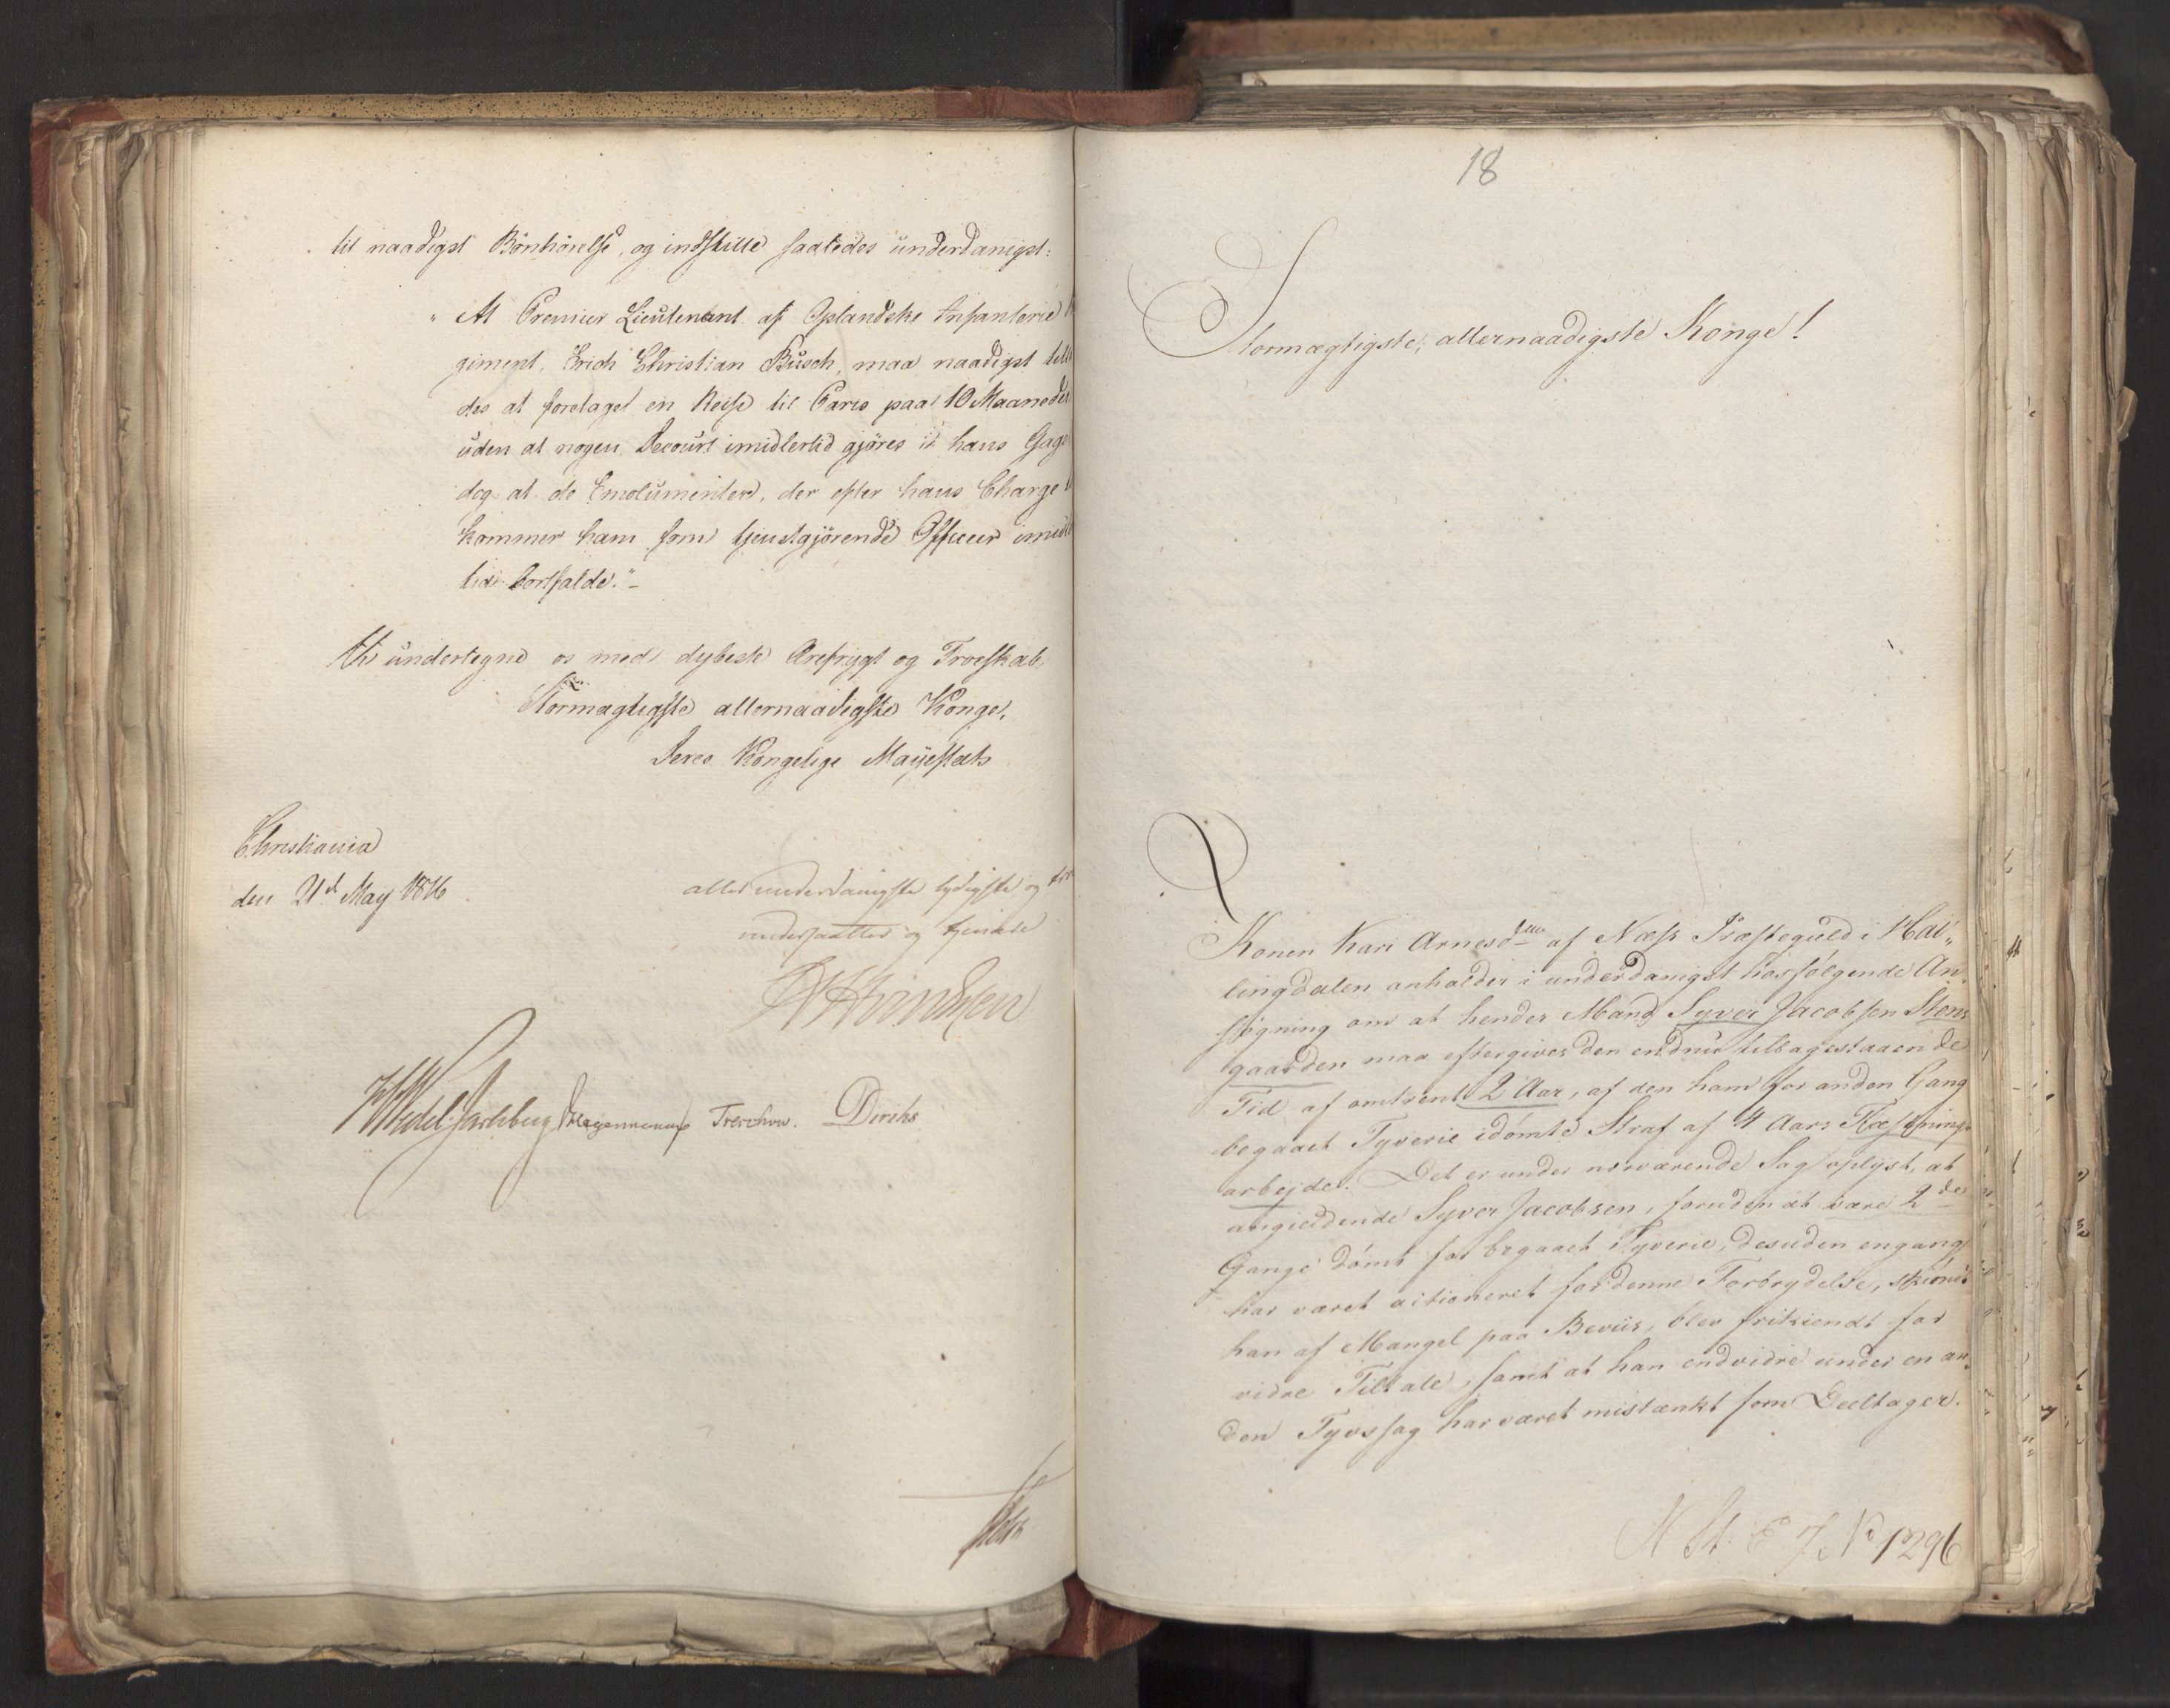 til naadigst Bønhørelse, og indstille saaledes underdanigst:
"At Premier Lieutenant af Oplandske Infanterie
giment, Erich Christian Büsch, maa naadigst
des at foretage en Reise til Paris paa 10 Maaneder
uden at nogen Decourt imidlertid gjøres i hans Gage
dog at de Emolumenter, der efter hans Charge
kommer ham som tjenstgjørende Officeer
tid bortfalde."
Vi undertegne os med dybeste Ærefrygt og Troeskab,
Stormægtigste allernaadigste Konge,
Deres Kongelige Mayestæts
Christiania
den 21d May 1816
allerunderdanigste lydigste og
undersaatter og tjenere
HWedel Jarlsberg Treschow. Diriks
18
Stormægtigste, allernaadigste Konge!
Konen Kari Arnesd af Næss Præstegield i Hal„
lingdalen anholder i underdanigst hosfølgende An„
søgning om at hendes Mand Syver Jacobsen Stens
gaarden maa eftergives den endnu tilbagestaaende
Tid af omtrent 2 Aar, af den ham for anden Gang
begaaet Tyverie idømte Straf af 4 Aars Fæstnings
arbejde. Det er under nærværende Sag oplyst, at
angieldende Syver Jacobsen, foruden at være 2de
Gange dømt for begaaet Tyverie, desuden engang
har været actioneret for denne Forbrydelse, skiønt
han af Mangel paa Beviis, blev frikiendt for
vidre Tiltale, samt at han endvidre under en an„
den Tyvssag har været mistænkt som Deeltager.
No 1296